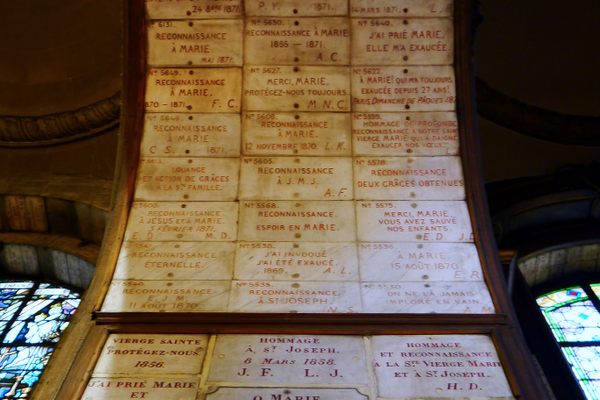 24 8BRE 1871
P. Y. 1871.
14 MARS 1871. L.
No 6131.
RECONNAISSANCE
À MARIE.
MAI 1871.
No 5630.
RECONNAISSANCE À MARIE
1855 — 1871.
A. C.
No 5640.
J'AI PRIÉ MARIE,
ELLE M'A EXAUCÉE.
No 5649.
RECONNAISSANCE
À MARIE.
1870 - 1871. F. C.
No 5627.
MERCI, MARIE,
PROTÉGEZ-NOUS TOUJOURS
M. N. C.
No 5622.
À MARIE! QUI M'A TOUJOURS
EXAUCÉE DEPUIS 27 ANS!
PARIS DIMANCHE DE PÂQUES
RECONNAISSANCE
À MARIE.
C. S. 1871.
No 5608.
RECONNAISSANCE
À MARIE.
12 NOVEMBRE 1870. L. K.
No 5599.
HOMMAGE DE PROFONDE
RECONNAISSANCE À NOTRE SAINTE
VIERGE MARIE QUI A DAIGNÉ
EXAUCER NOS VŒUX.
LOUANGE
ET ACTION DE GRÂCES
À LA STE FAMILLE.
No 5605.
RECONNAISSANCE
À J. M. J.
A. F.
No 5578.
RECONNAISSANCE
DEUX GRÂCES OBTENUES
No 5600.
RECONNAISSANCE
À JÉSUS ET À MARIE.
5 FÉVRIER 1871.
E. D. M. D.
No 5568.
RECONNAISSANCE
ESPOIR EN MARIE.
No 5575.
MERCI, MARIE,
VOUS AVEZ SAUVÉ
NOS ENFANTS.
E. D. J. E.
RECONNAISSANCE
ÉTERNELLE.
No 5538.
J'AI INVOQUÉ
J'AI ÉTÉ EXAUCÉ
1869. A. L.
No 5536.
À MARIE
15 AOÛT 1870.
E. R.
No 5540.
RECONNAISSANCE
E. J. M.
11 AOÛT 1870.
No 5535.
RECONNAISSANCE
À ST JOSEPH.
N. S.
No 5530.
ON NE VA JAMAIS
IMPLORE EN VAIN
A. M.
VIERGE SAINTE
PROTÉGEZ-NOUS
1856.
HOMMAGE
À ST JOSEPH.
6 MARS 1858.
J. F. L. J.
HOMMAGE
ET RECONNAISSANCE
À LA STE VIERGE MARIE
ET À ST JOSEPH.
H. D.
J'AI PRIÉ MARIE
ET
O MARIE